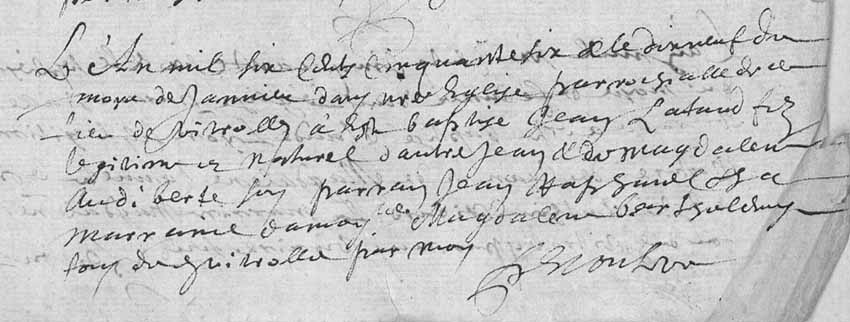 L'An mil six Cents Cinquante six & le dixneuf du
moys de Janvier dans nre Eglise parrochialle de ce
lieu de Vitrolles à esté baptisé Jean Lataud filz
legitime et naturel d'autre Jean & de Magdalene
Audiberte son parrain Jean & sa
marraine damoyelle Magdalene
de Vitrolle par moy